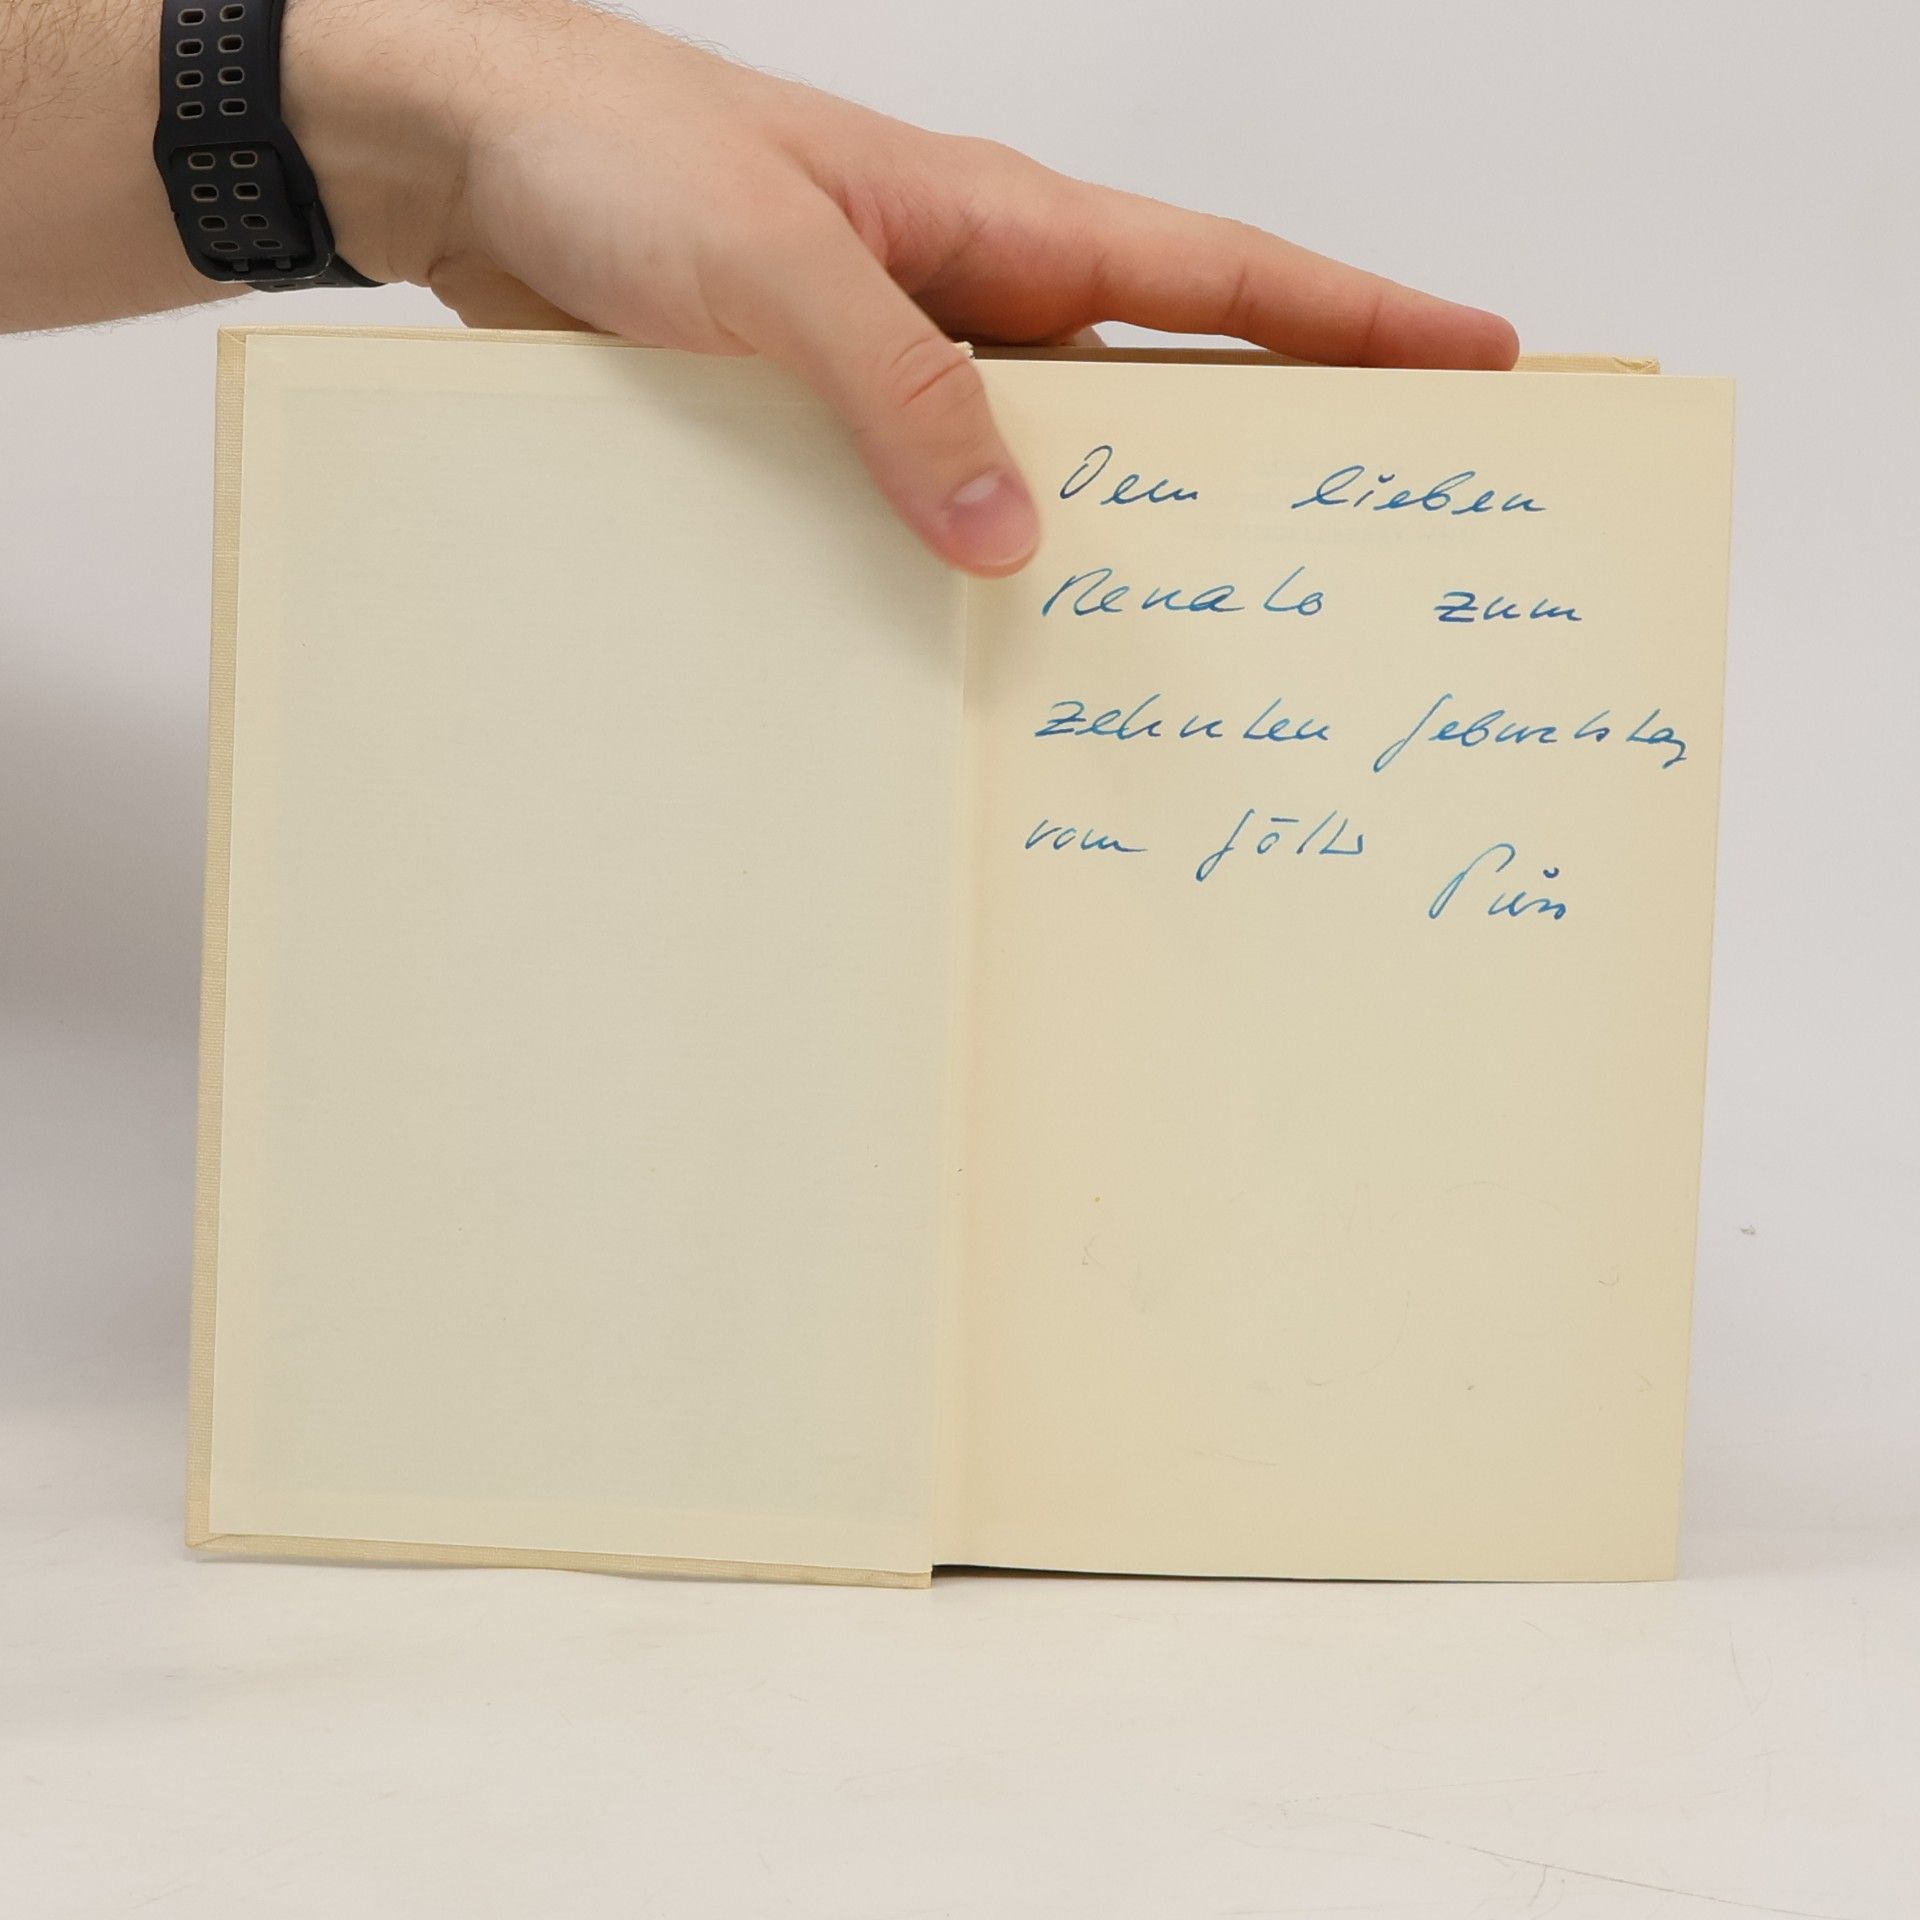 Dem lieben
Renato zum
zehnten Geburtstag
vom Götti